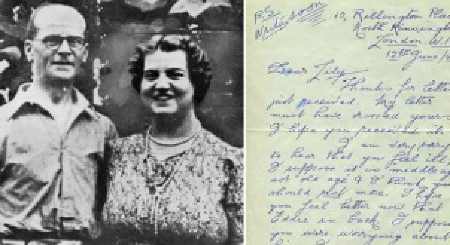 P.S.
10, Rillington Place
North Kensington
London. W.11
Dear Lily
Thanks for letter
just received. My letter
must have crossed your
I hope you received it.
I am very sorry
to hear that you feel ill
I suppose
old age I
should rest more. I hope
you feel better now that
Eddie is back I suppose
you were worrying about